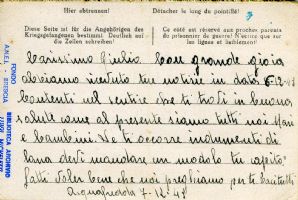 Hier abtrennen!
Détacher le long du pointillé!
Diese Seite ist für die Angehörigen des Kriegsgefangenen bestimmt. Deutlich auf die Zeilen schreiben!
Ce côté est réservé aux proches parents du prisonnier de guerre. N'écrire que sur les lignes et lisiblement!
Carissimo Giulio Con grande gioia
abbiamo ricevuto tue notizie in data
Contenti nel sentire che ti trovi in buona
salute come al presente siamo tutti noi Mari
e bambini. Se ti occorre indumenti di
lana devi mandare un modolo tu aperto
fatti voler bene che noi preghiamo per te
Acquafredda 7-12-43
FONDO
A.N.E.I. - BRESCIA
BIBLIOTECA ARCHIVIO